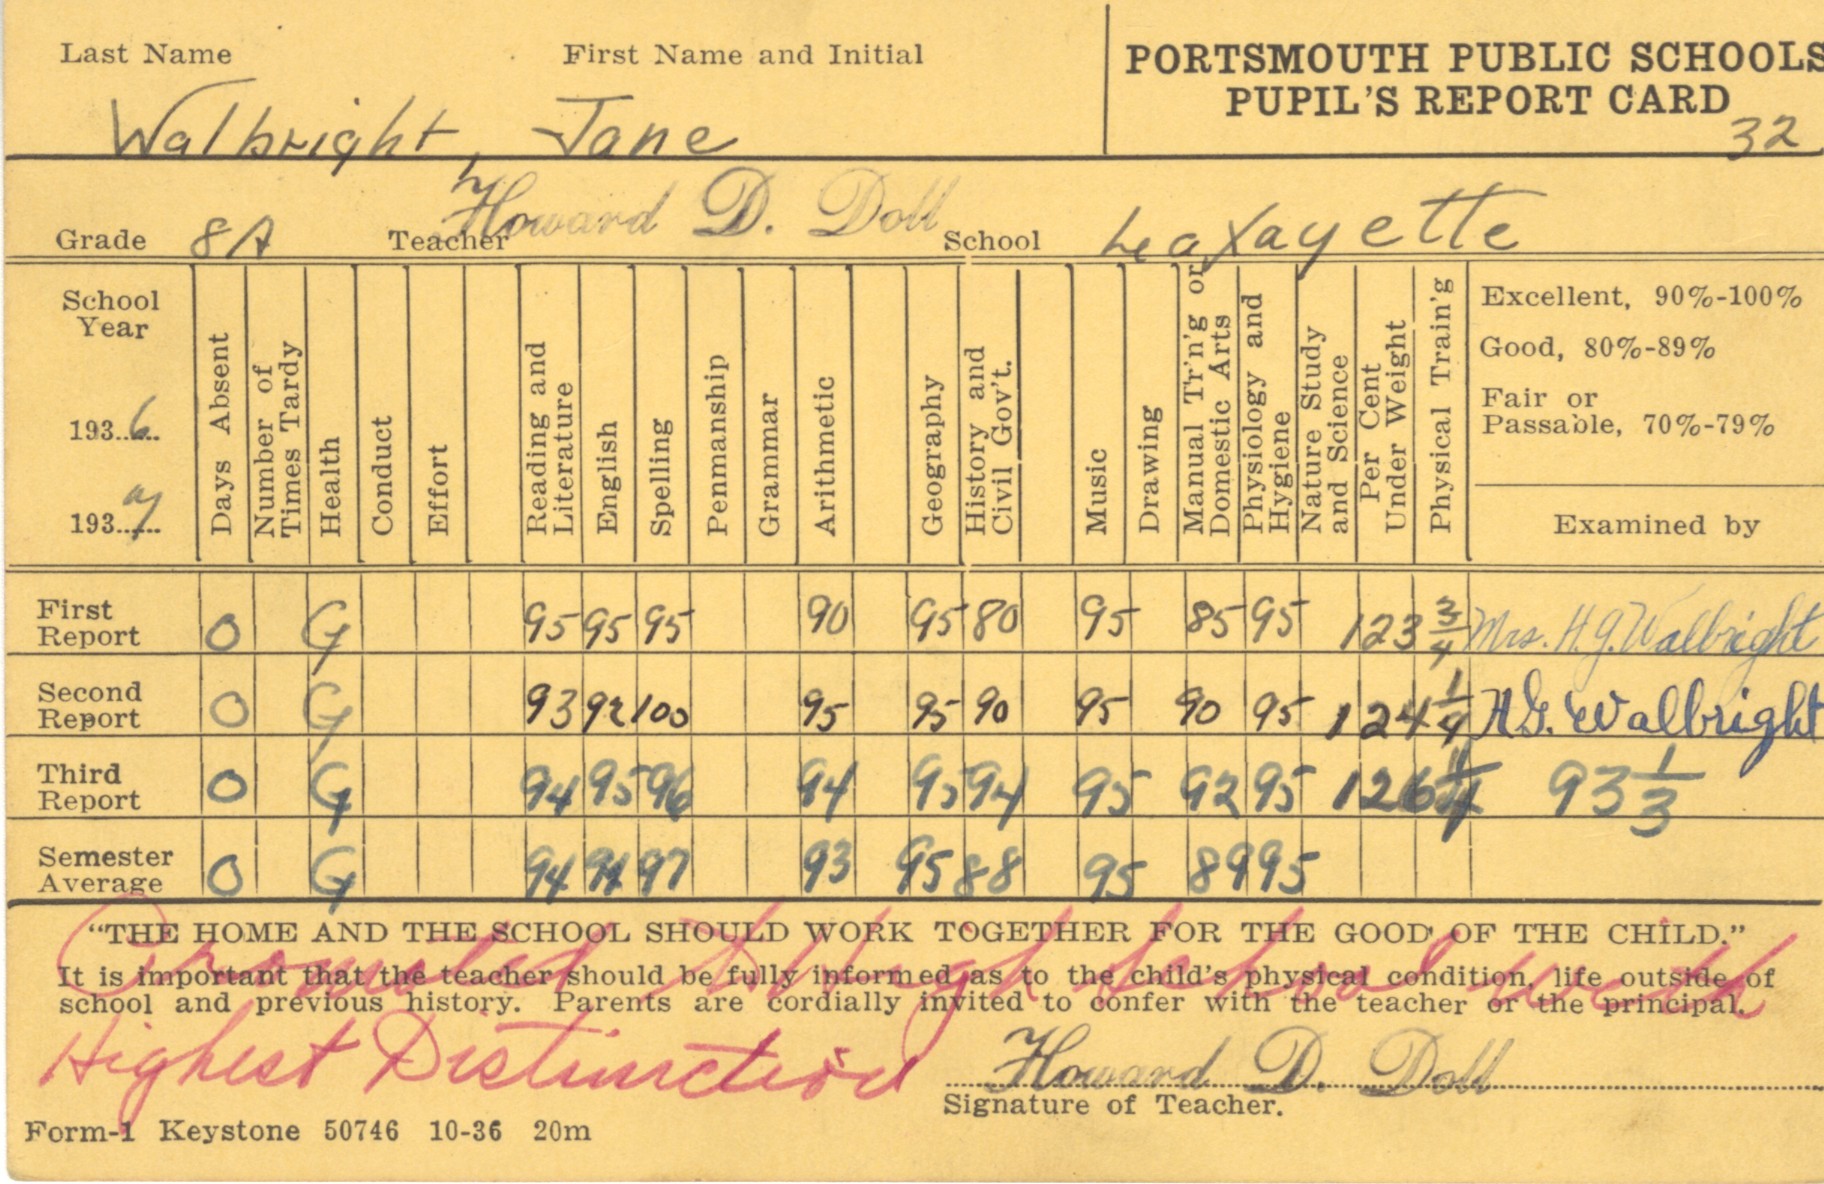 Last Name First Name and Initial
PORTSMOUTH PUBLIC SCHOOLS
PUPIL'S REPORT CARD
Walbright, Jane
32
Grade 8A Teacher Howard D. Doll School Lafayette
School Year
1936
1937
Days Absent
Number of Times Tardy
Health
Conduct
Effort
Reading and Literature
English
Spelling
Penmanship
Grammar
Arithmetic
Geography
History and Civil Gov't.
Music
Drawing
Manual Tr'n'g or Domestic Arts
Physiology and Hygiene
Nature Study and Science
Per Cent Under Weight
Physical Train'g
Excellent, 90%-100%
Good, 80%-89%
Fair or
Passable, 70%-79%
Examined by
First Report 0 G 95 95 95 90 95 80 95 85 95 123 3/4 Mrs. H.G. Walbright
Second Report 0 G 93 92 100 95 95 90 95 90 95 124 1/4 H.G. Walbright
Third Report 0 G 94 95 96 94 95 94 95 92 95 126 93 1/3
Semester Average 0 G 94 94 97 93 95 88 95 89 95
"THE HOME AND THE SCHOOL SHOULD WORK TOGETHER FOR THE GOOD OF THE CHILD."
It is important that the teacher should be fully informed as to the child's physical condition, life outside of
school and previous history. Parents are cordially invited to confer with the teacher or the principal.
Promoted to High School with
Highest Distinction
Howard D. Doll
Signature of Teacher.
Form-1 Keystone 50746 10-36 20m